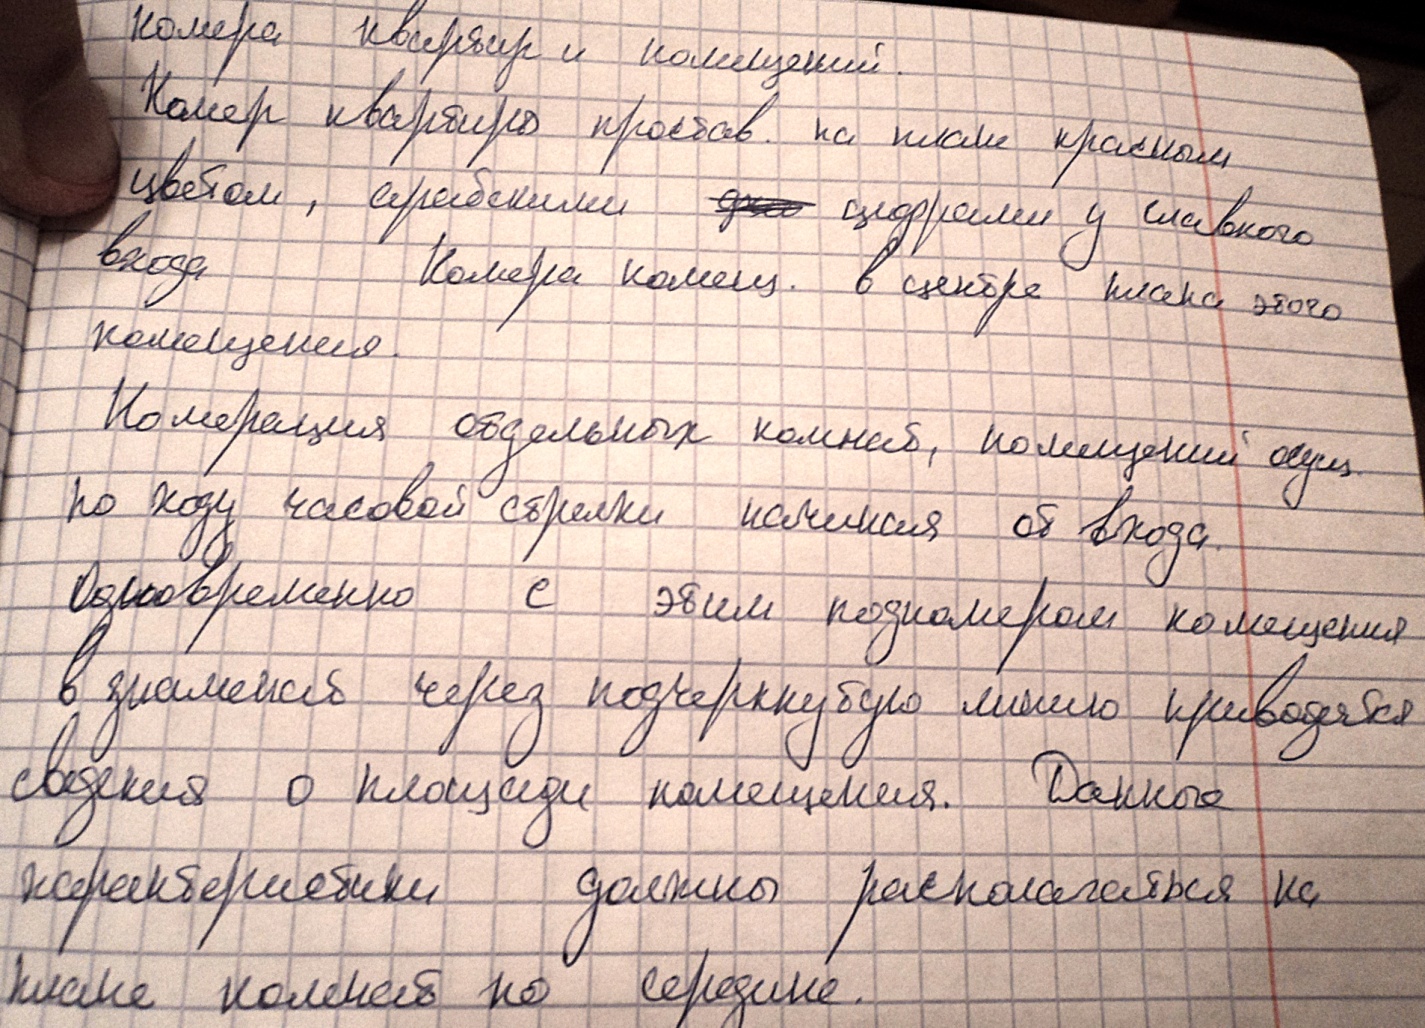 номера квартир и помещений.
Номер квартиры простав. на плане красным
цветом, арабскими цифрами у главного
входа Номера помещ. в центре плана этого
помещения.
Номерация отдельных комнат, помещений осущ.
по ходу часовой стрелки начиная от входа.
Одновременно с этим подномером помещения
в знаменат через подчеркнутую линию приводятся
сведения о площади помещения. Данные
характеристики должны располагаться на
плане комнат по середине.